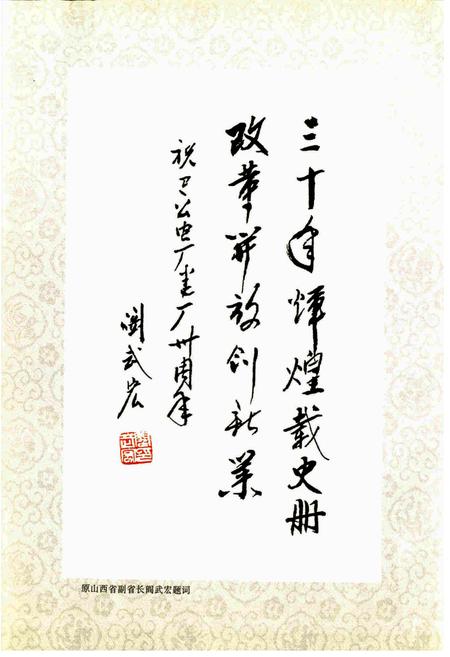 三十年辉煌载史册
改革开放创新业
祝卫公电厂建厂卅周年
阎武宏
原山西省副省长阎武宏题词